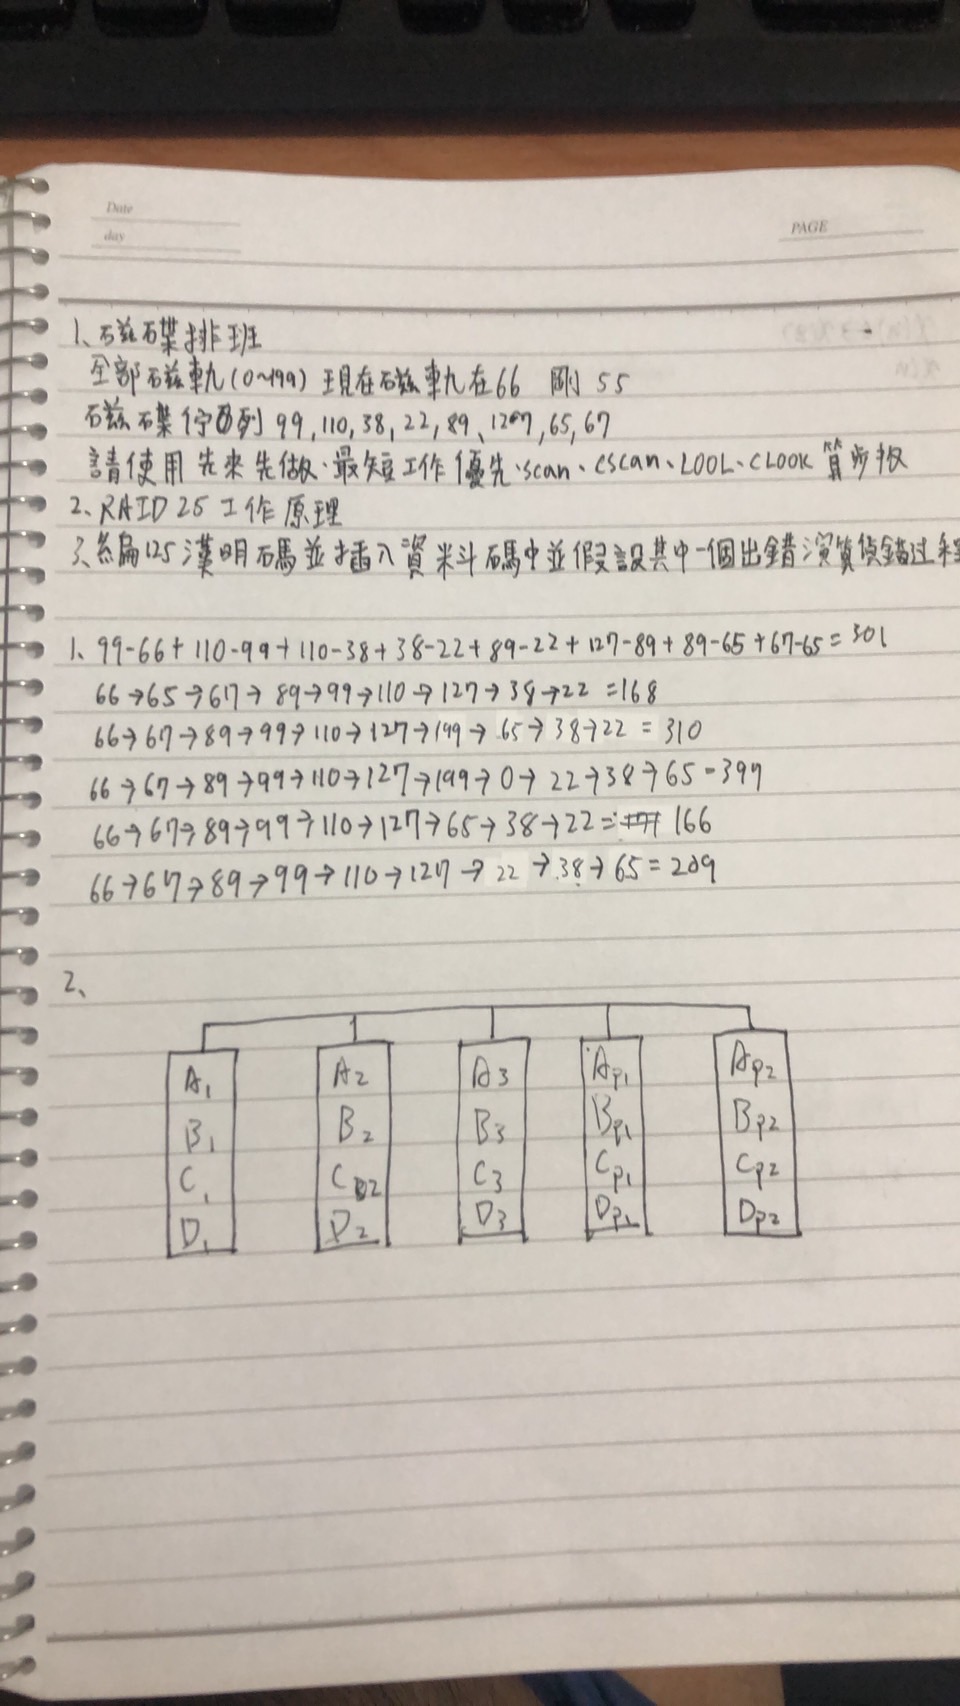 Date
day
PAGE
1、磁碟排班
全部磁軌(0~199) 現在磁軌在66 剛55
磁碟佇列 99,110,38,22,89、127,65,67
請使用先來先做、最短工作優先、scan、CSCAN、LOOL、CLOOK 算步扳
2、RAID 25 工作原理
3、編125漢明碼並插入資料碼中並假設其中一個出錯演算偵錯过程
1、99-66+110-99+110-38+38-22+89-22+127-89+89-65+67-65=301
66→65→67→89→99→110→127→38→22=168
66→67→89→99→110→127→199→65→38→22=310
66→67→89→99→110→127→199→0→22→38→65=397
66→67→89→99→110→127→65→38→22=166
66→67→89→99→110→127→22→38→65=209
2、
A1 A2 A3 Ap1 Ap2
B1 B2 B3 Bp1 Bp2
C1 C2 C3 Cp1 Cp2
D1 D2 D3 Dp1 Dp2